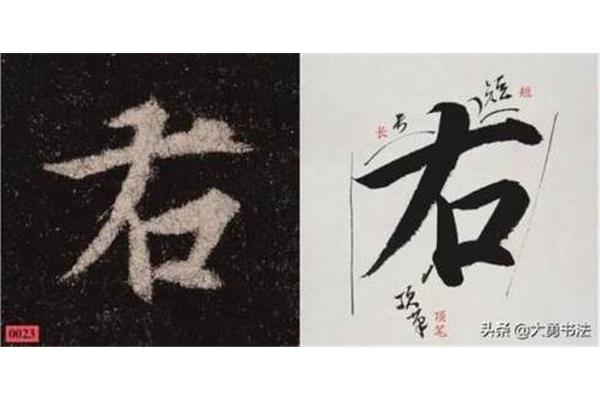 右
0023
右
长
长
短
短
顶笔
顶笔
头条 @大勇书法